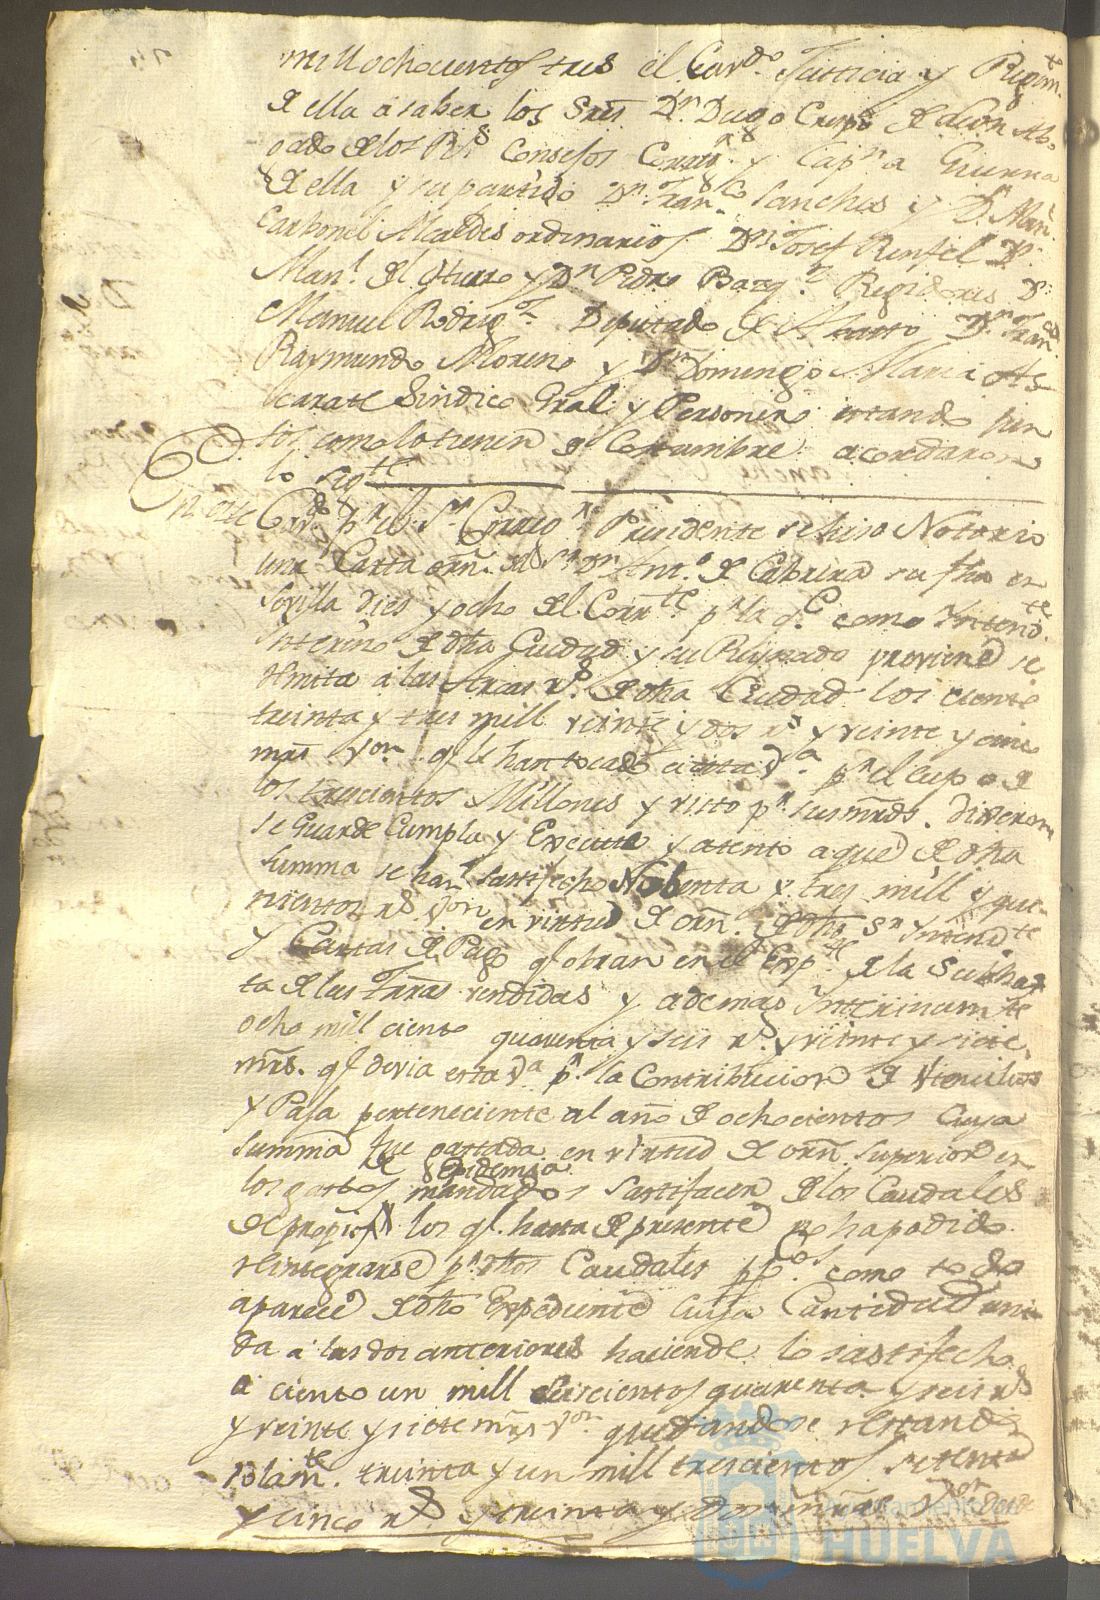 mill ochocientos tres el Cav.do Justicia y Regim.to
de ella a saber los Sres. Dn. Diego Crespo de Leon Abo
gado de los Rs. Consejos Correg.or y Cap.n a Guerra
de ella y su partido Dn. Fran.co Sanches y Dn. Man.
Carbonel Alcaldes ordinarios Dn. Josef Rengel Dn.
Man.l del Hierro y Dn. Pedro Barq. Regidores Dn.
Manuel Rodrig.z Diputado de Abasto Dn. Fran.co
Raymundo Moreno y Dn. Domingo Maria As
carate Sindico Gral y Personero estando jun
tos como lo tienen de Costumbre acordaron
lo sig.te
En este Cav.do p.r el Sr. Correg.r Presidente se hiso Notorio
una Carta orn. del Sr. Dn. Ant.o de Cabrera su fha en
Sevilla dies y ocho del Corr.te p.r la q.e como Intend.te
Interino de dha Ciudad y su Reynado previene se
remita a las Arcas R.s de dha Ciudad los ciento
treinta y tres mill veinte y dos rs. y veinte y cinco
mrs. von. q.e le han tocado a esta V.a p.r el cupo de
los trescientos Millones y visto p.r sus mrds. dixeron
se Guarde Cumpla y Execute y atento a que de dha
summa se han satisfecho Nobenta y tres mill y qui-
nientos rs. von. en virtud de orn. de dho Sr. Intend.te
y Cartas de Pago q.e obran en el Exp.te de la Subhas
ta de las Tierras vendidas y ademas Interinam.te
ocho mill ciento quarenta y seis rs. y veinte y siete
mrs. q.e devia esta V.a p.r la Contribucion de Utencilios
y Paja perteneciente al año de ochocientos cuya
summa fue gastada en virtud de orn. superior en
los gastos de Epidemia mandados satisfacer de los Caudales
de propios los q.e hasta de presente no ha podido
reintegrarse p.r dhos Caudales pp.cos como todo
aparece de dho Expediente cuya Cantidad uni
da a las dos anteriores haciende lo satisfecho
a ciento un mill seiscientos quarenta y seis rs.
y veinte y siete mrs von. quedandose restando
solam.te treinta y un mill trescientos setenta
y cinco rs. y treinta y dos mrs. von.
Ayuntamiento de
HUELVA